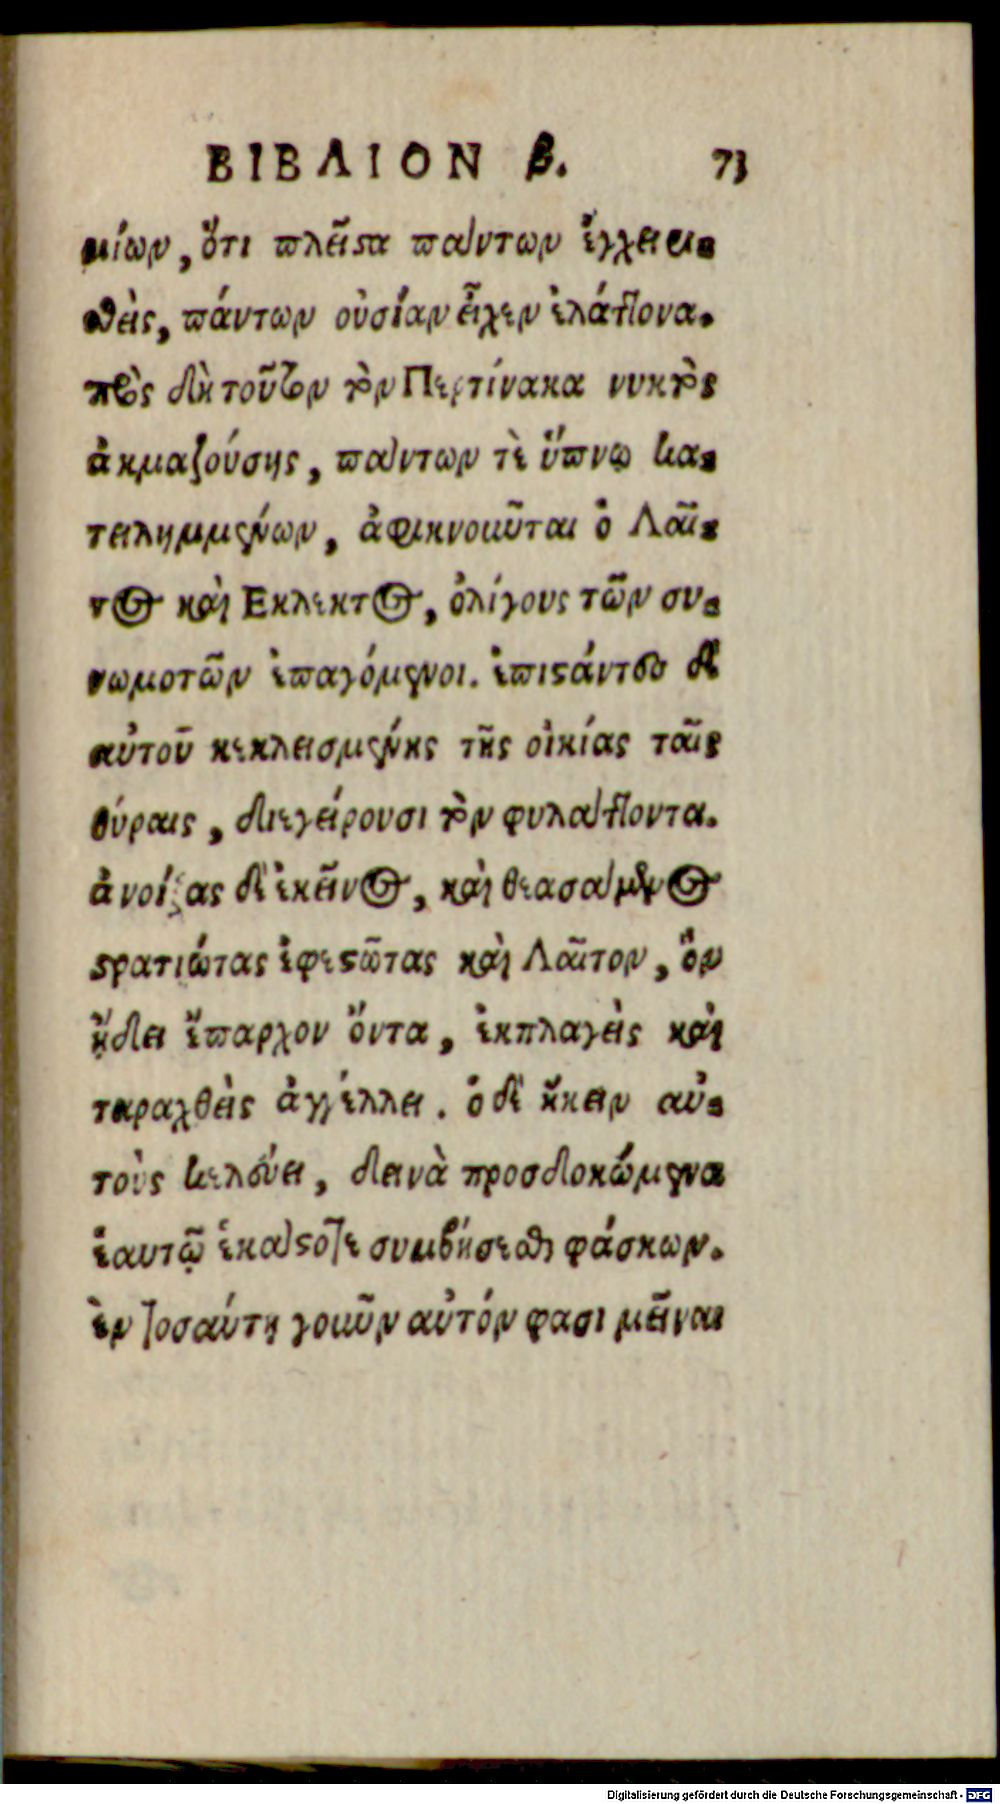 ΒΙΒΛΙΟΝ β. 73
μίων, ὅτι πλεῖστα πάντων ἐγχειρι-
θεὶς, πάντων οὐσίαν εἶχεν ἐλάττονα.
πρὸς δὴ τοῦτον τὸν Περτίνακα νυκτὸς
ἀκμαζούσης, πάντων τὲ ὕπνῳ κα-
τειλημμένων, ἀφικνοῦνται ὁ Λαῖ-
τος καὶ Εκλεκτος, ὀλίγους τῶν συ-
νωμοτῶν ἐπαγόμενοι. ἐπιστάντων δὲ
αὐτοῦ κεκλεισμένης τῆς οἰκίας ταῖς
θύραις, διεγείρουσι τὸν φυλάττοντα.
ἀνοίξας δὲ ἐκεῖνος, καὶ θεασάμενος
στρατιώτας ἐφεστῶτας καὶ Λαῖτον, ὃν
ᾔδει ἔπαρχον ὄντα, ἐκπλαγεὶς καὶ
ταραχθεὶς ἀγγέλλει. ὁ δὲ ἥκειν αὐ-
τοὺς κελεύει, δεινὰ προσδοκώμενα
ἑαυτῷ ἑκάστοτε συμβήσεσθαι φάσκων.
ἐν τοσαύτῃ γοῦν αὐτόν φασι μεῖναι
Digitalisierung gefördert durch die Deutsche Forschungsgemeinschaft - DFG